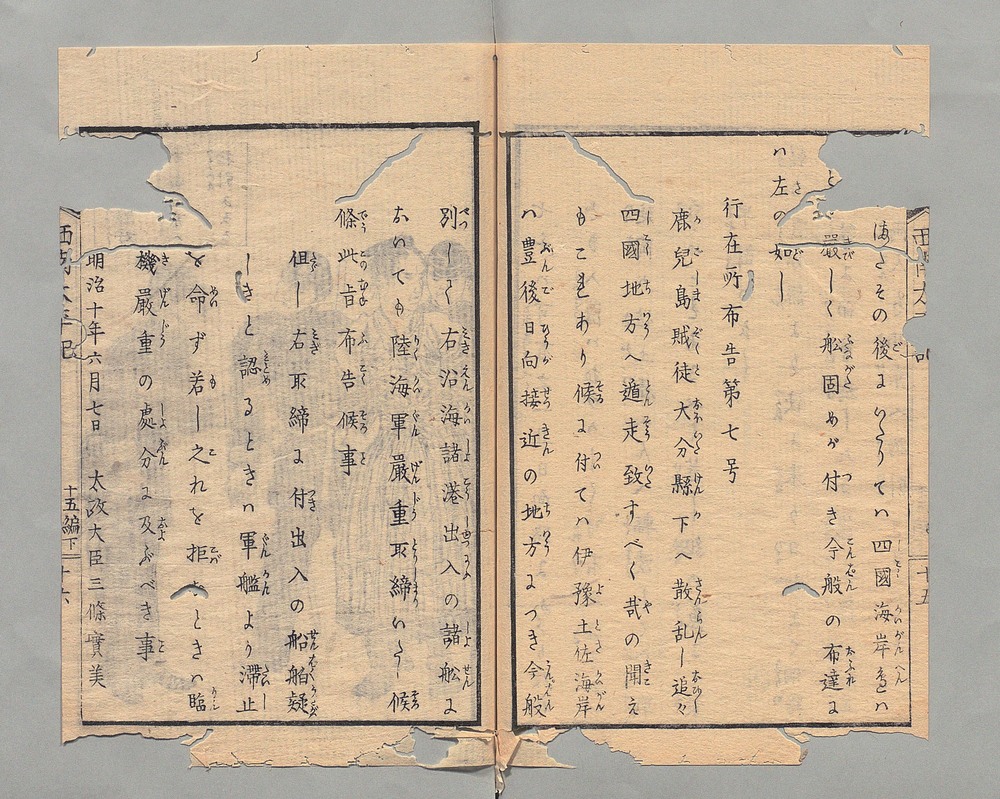 その後にいたりてハ四國海岸邊ハ
嚴しく船固めが付き今般の布達に
ハ左の如し
行在所布告第七号
鹿兒島賊徒大分縣下へ散乱し追々
四國地方へ遁走致すべく哉の聞え
もこれあり候に付てハ伊豫土佐海岸
ハ豊後日向接近の地方につき今般
別して右沿海諸港出入の諸舩に
おいても陸海軍嚴重取締いたし候
條此旨布告候事
但し右取締に付出入の船舶疑
しきと認るときハ軍艦より滞止
を命ず若し之れを拒むときハ臨
機嚴重の處分に及ぶべき事
明治十年六月七日 太政大臣三條實美
十五編下